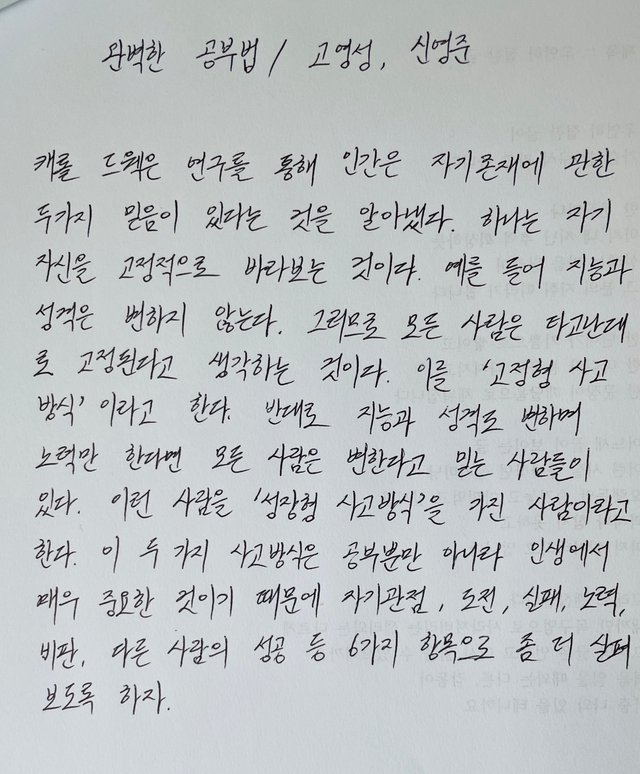 완벽한 공부법 / 고영성, 신영준
캐롤 드웩은 연구를 통해 인간은 자기존재에 관한
두가지 믿음이 있다는 것을 알아냈다. 하나는 자기
자신을 고정적으로 바라보는 것이다. 예를 들어 지능과
성격은 변하지 않는다. 그러므로 모든 사람은 타고난대
로 고정된다고 생각하는 것이다. 이를 '고정형 사고
방식' 이라고 한다. 반대로 지능과 성격도 변하며
노력만 한다면 모든 사람은 변한다고 믿는 사람들이
있다. 이런 사람을 '성장형 사고방식'을 가진 사람이라고
한다. 이 두 가지 사고방식은 공부분만 아니라 인생에서
매우 중요한 것이기 때문에 자기관점, 도전, 실패, 노력,
비판, 다른 사람의 성공 등 6가지 항목으로 좀 더 살펴
보도록 하자.